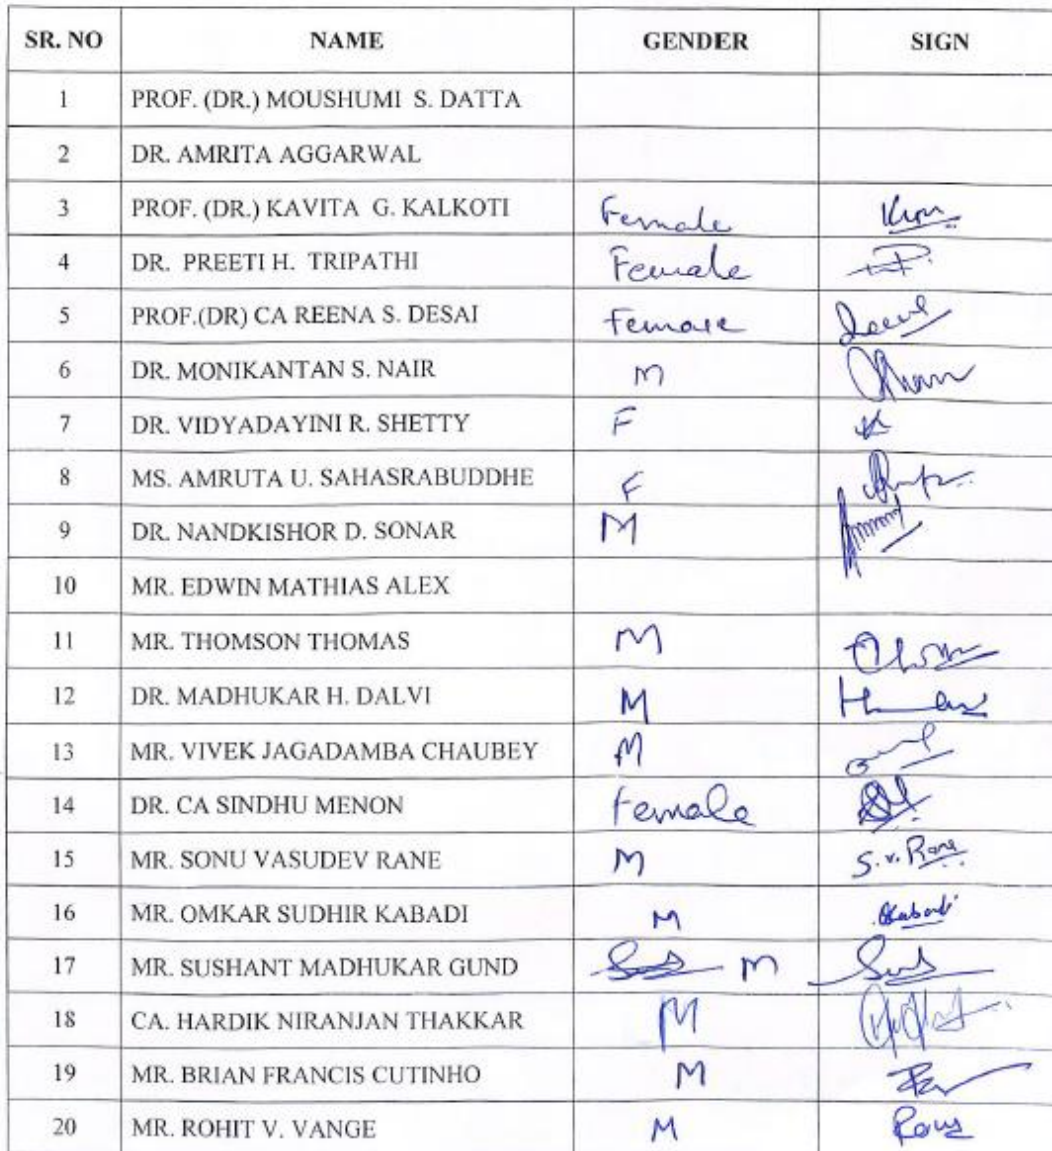 SR. NO NAME GENDER SIGN
1 PROF. (DR.) MOUSHUMI S. DATTA
2 DR. AMRITA AGGARWAL
3 PROF. (DR.) KAVITA G. KALKOTI Female
4 DR. PREETI H. TRIPATHI Female
5 PROF.(DR) CA REENA S. DESAI Female
6 DR. MONIKANTAN S. NAIR M
7 DR. VIDYADAYINI R. SHETTY F
8 MS. AMRUTA U. SAHASRABUDDHE F
9 DR. NANDKISHOR D. SONAR M
10 MR. EDWIN MATHIAS ALEX
11 MR. THOMSON THOMAS M
12 DR. MADHUKAR H. DALVI M
13 MR. VIVEK JAGADAMBA CHAUBEY M
14 DR. CA SINDHU MENON Female
15 MR. SONU VASUDEV RANE M S.V. Rane
16 MR. OMKAR SUDHIR KABADI M
17 MR. SUSHANT MADHUKAR GUND M
18 CA. HARDIK NIRANJAN THAKKAR M
19 MR. BRIAN FRANCIS CUTINHO M
20 MR. ROHIT V. VANGE M